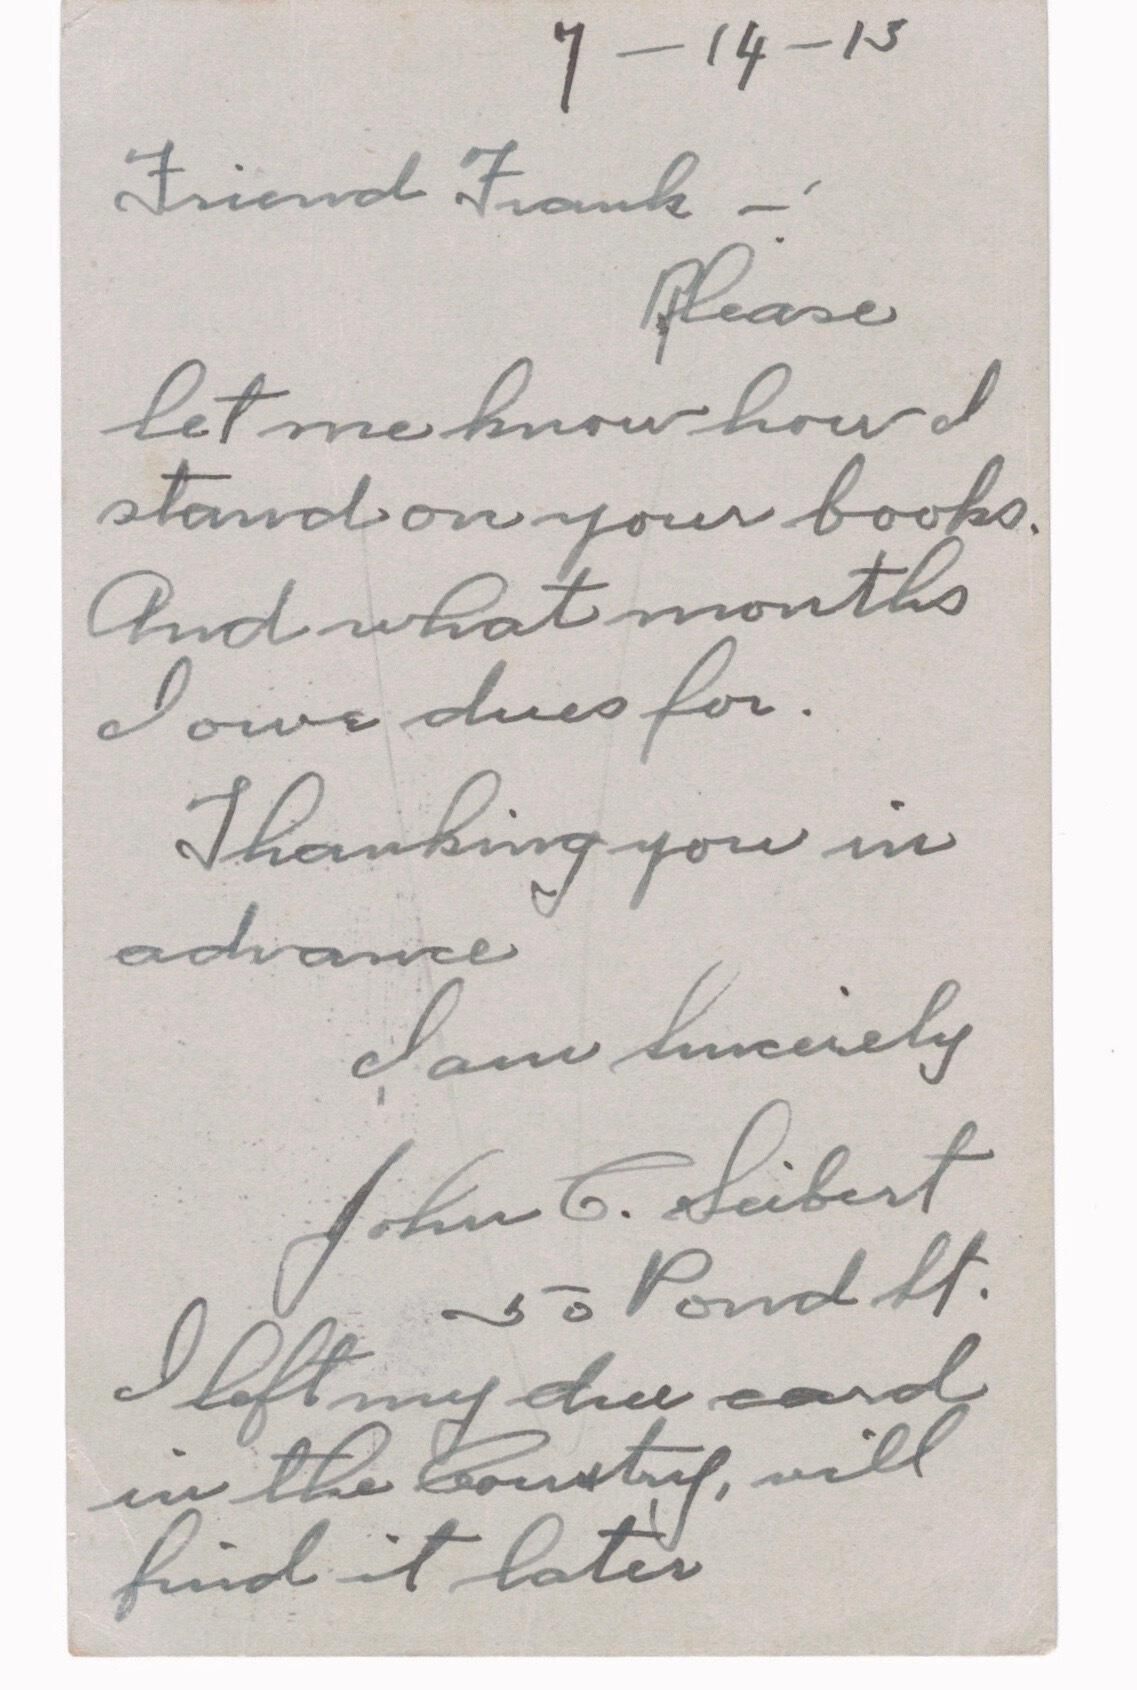 7 - 14 - 13
Friend Frank -
Please
let me know how I
stand on your books.
And what months
I owe dues for.
Thanking you in
advance
I am Sincerely
John C. Seibert
50 Pond St.
I left my due card
in the Country, will
find it later